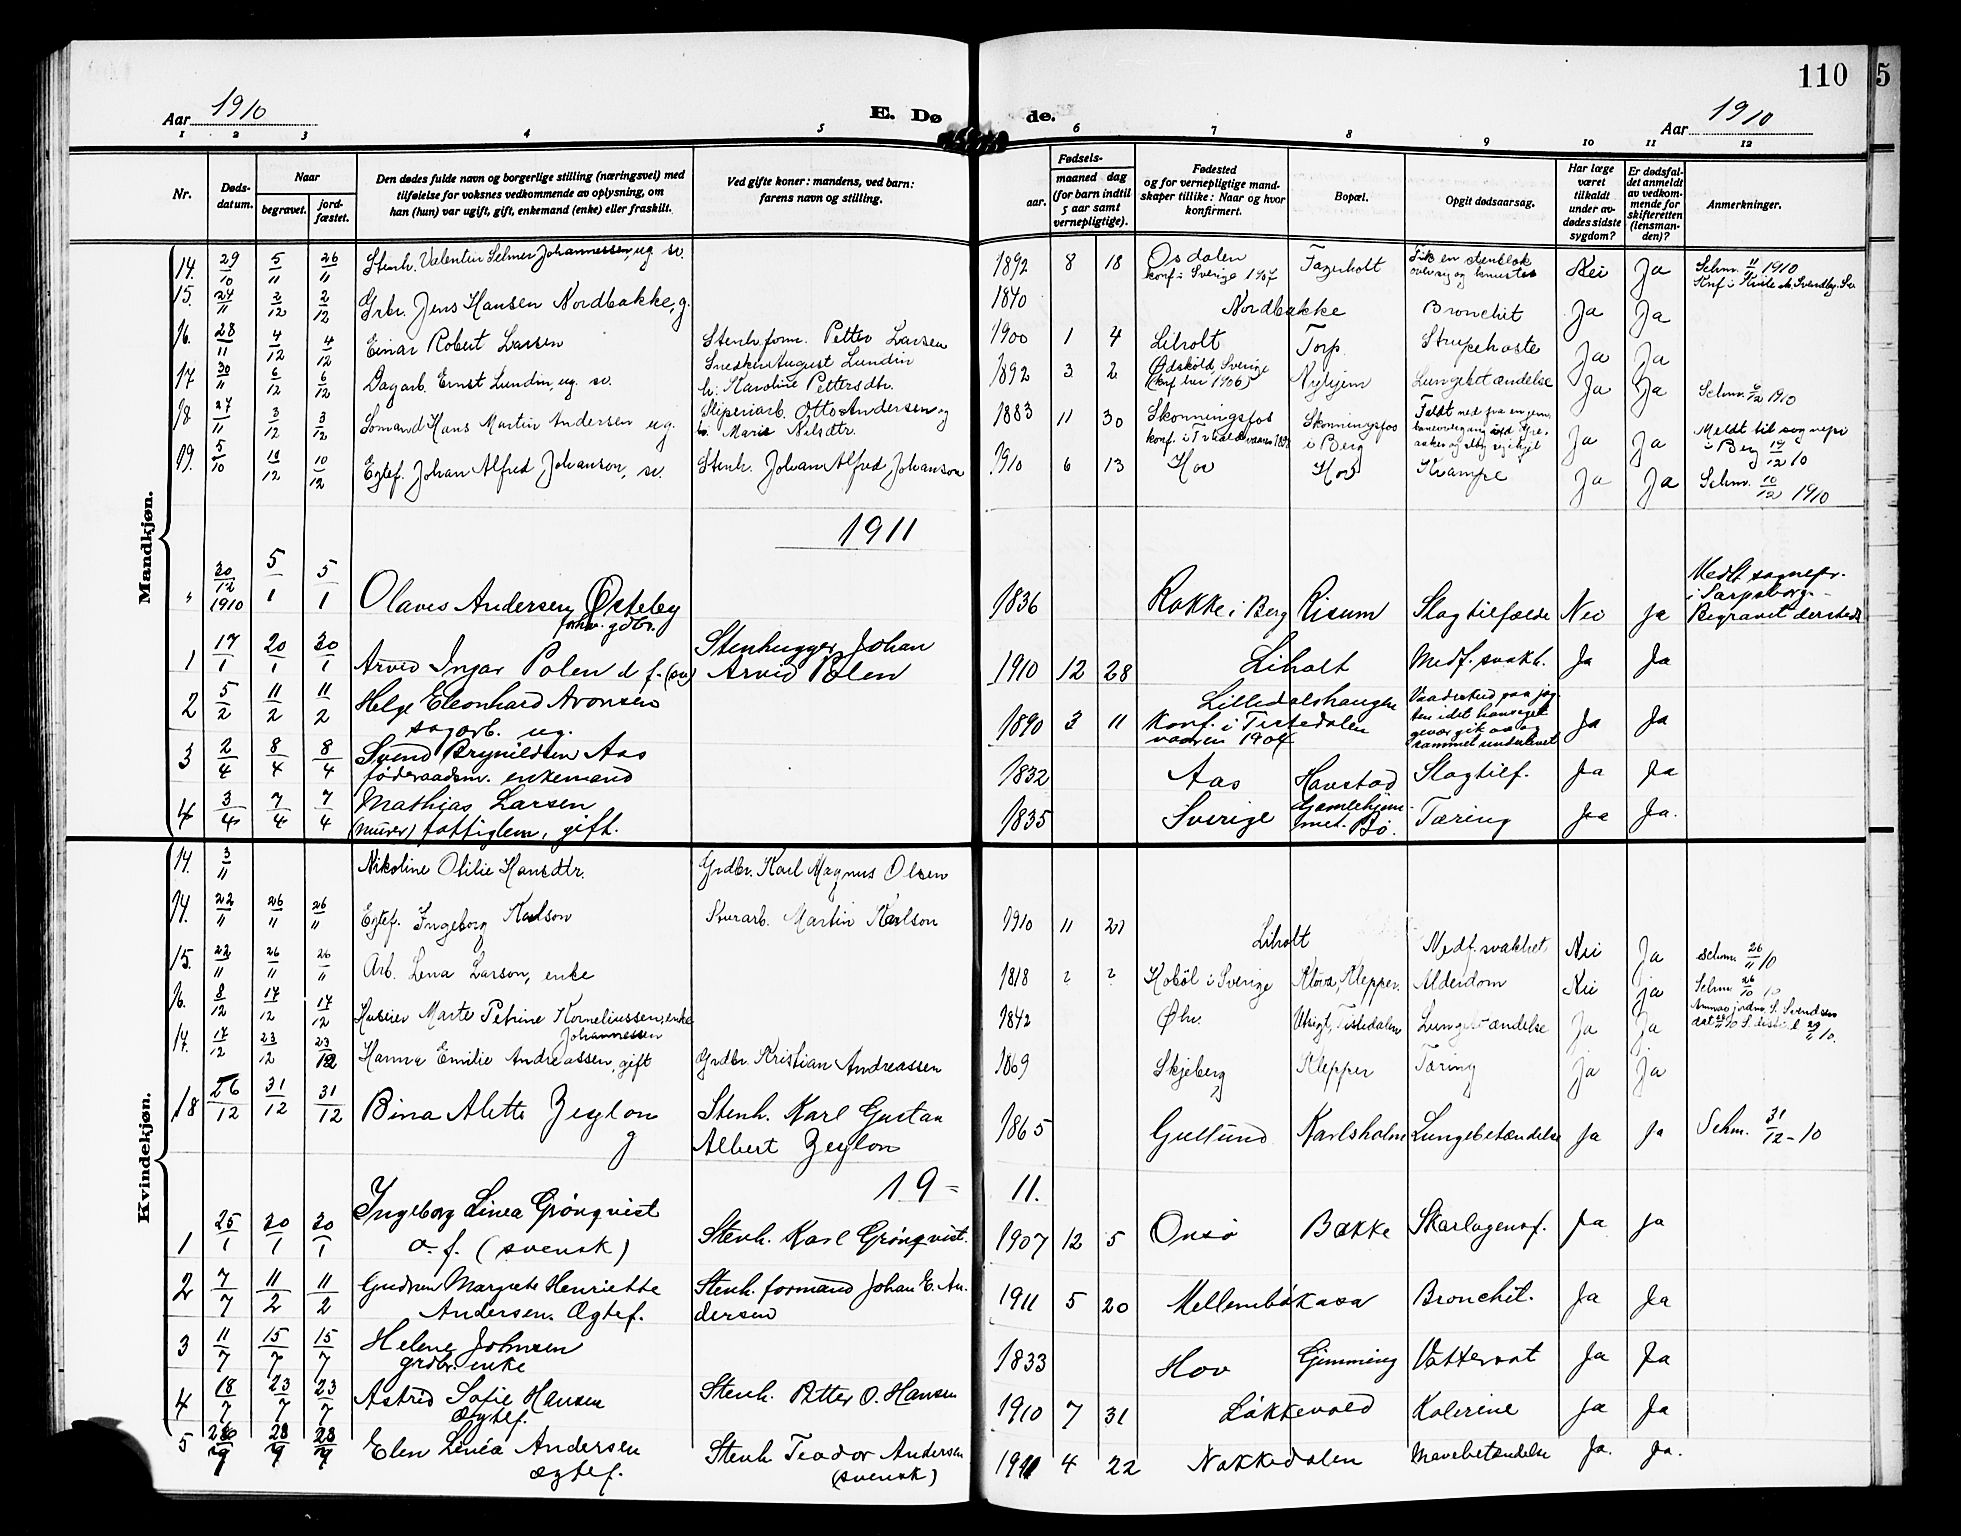 110
5
Aar 1910
E. Dø
de.
Aar 1910
1 2 3 4 5 6 7 8 9 10 11 12
Nr.
Døds-
datum.
Naar
begravet.
jord-
fæstet.
Den dødes fulde navn og borgerlige stilling (næringsvei) med
tilføielse for voksnes vedkommende av oplysning, om
han (hun) var ugift, gift, enkemand (enke) eller fraskilt.
Ved gifte koner: mandens, ved barn:
farens navn og stilling.
Fødsels-
aar.
maaned dag
(for barn indtil
5 aar samt
vernepligtige).
Fødested
og for vernepligtige mand-
skaper tillike: Naar og hvor
konfirmert.
Bopæl.
Opgit dødsaarsag.
Har læge
været
tilkaldt
under av-
dødes sidste
sygdom?
Er dødsfal-
det anmeldt
av vedkom-
mende for
skifteretten
(lensman-
den)?
Anmerkninger.
Mandkjøn.
14. 29/10 5/11 26/11 Stenh. Valentin Selmer Johannessen, ug. sv. 1892 8 18 Osdalen
konf. i Sverige 1907 Fagerholt Fik en stenblok
over sig og knustes Nei Ja Schm. 11/11 1910
15. 24/11 2/12 2/12 Grbr. Jens Hansen Nordbakke, g. 1840 Nordbakke Bronchit Ja Ja
16. 28/11 4/12 4/12 Einar Robert Larsen Stenh.form. Petter Larsen 1900 1 4 Liholt Torp Strupehoste Ja Ja
17 30/11 6/12 6/12 Dagarb. Ernst Lundin, ug. sv. Snedker August Lundin
h: Karoline Pettersdtr. 1892 3 2 Ødsköld, Sverige
(konf. der 1906) Nyhjem Lungebetændelse Ja Ja Schm. 6/12 1910
18 27/11 3/12 3/12 Sømand Hans Martin Andersen ug. Sliperiarb. Otto Andersen og
h. Marie Nilsdtr. 1883 11 30 Skonningsfos
konf. i Tistedalen Skonningsfos
i Berg Ja Ja Meldt til sognepr.
i Berg 19/12 10
19. 5/10 10/12 10/12 Egtef. Johan Alfred Johanson, sv. Stenh. Johan Alfred Johanson 1910 6 13 Hov Hov Krampe Ja Ja Schm. 10/12 1910
1911
" 30/12 1910 5/1 5/1 Olaves Andersen Østeby
forhv. gdbr. 1836 Rokke i Berg Risum Slagtilfælde Nei Ja Medlt sognepr.
i Sarpsborg.
Begravet dersteds
1 17/1 20/1 30/1 Arvid Ingar Polen d. f. (sv) Stenhugger Johan
Arvid Polen 1910 12 28 Liholt Medf. svakh. Ja Ja
2 5/2 11/2 11/2 Helge Eleonhard Aronsen
sagarb. ug. 1890 3 11 Lilledalshaugen
Konf. i Tistedalen
vaaren 1904 Vaadeskud paa jag-
ten idet hans eget
gevær gik av og
rammet underlivet Ja Ja
3 2/4 8/4 8/4 Svend Brynildsen Aas
føderaadsm. enkemand 1832 Aas Havstad Slagtilf. Ja Ja
4 3/4 7/4 7/4 Mathias Larsen
(murer) fattiglem, gift. 1835 Sverige Gamlehjem-
met. Bø. Tæring Ja Ja.
Kvindekjøn.
14. 3/11 Nikoline Otilie Hansdtr. Grdbr. Karl Magnus Olsen
14. 22/11 26/11 26/11 Egtef. Ingeborg Karlson Stenarb. Martin Karlson 1910 11 21 Liholt Medf. svakhet Nei Ja Schm. 26/11 10
15. 22/11 26/11 26/11 Arb. Lena Larson, enke 1818 ? ? Hoböl i Sverige Klova, Klepper. Alderdom Nei ja Schm. 26/10 10
16. 8/12 17/12 17/12 Huseier Marte Petrine Korneliussen, enke 1842 Øhr. Utsigt, Tistedalen Lungebetændelse Ja Ja
17. 17/12 23/12 23/12 Hanna Emilie Johannessen Andreassen, gift Grdbr. Kristian Andreassen 1869 Skjeberg Klepper Tæring Ja Ja
18 26/12 31/12 31/12 Bina Alette Zeylon
g Stenh. Karl Gustav
Albert Zeylon 1865 Gullund Karlsholm Lungebetændelse Ja Ja Schm. 31/12 - 10
19 = 11.
1 25/1 30/1 30/1 Ingeborg Linea Grönqvist
a. f. (svensk) Stenh. Karl Grönqvist. 1907 12 5 Onsö Bække Skarlagensf. Ja ja
2 7/7 11/2 11/2 Gudrun Margrete Henriette
Andersen. Ægtef. Stenh. formand Johan E. An-
dersen 1911 5 20 Mellembökasa Bronchit. Ja Ja
3 11/7 15/7 15/7 Helene Johnsen
grdbr. enke 1833 Hov Gimming Vattersot Ja Ja
4 18/7 23/7 23/7 Astrid Sofie Hansen
Ægtef. Stenh. Petter O. Hansen 1910 7 31 Løkkevold Kolerine Ja Ja
5 26/9 28/9 28/9 Elen Linéa Andersen
ægtef. Stenh Teodor Andersen
(svensk) 1911 4 22 Nakkedalen Mavebetændelse Ja. Ja.